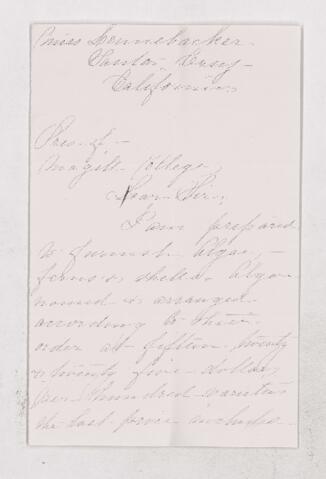 Miss Lennebacker
Santa Cruz
California
Pres. of
Magill College
Dear Sir,
I am prepared
to furnish Algae,
ferns & shells. Algae
named & arranged
according to their
order at fifteen, twenty
& twenty five dollars
per hundred varieties
the last price includes